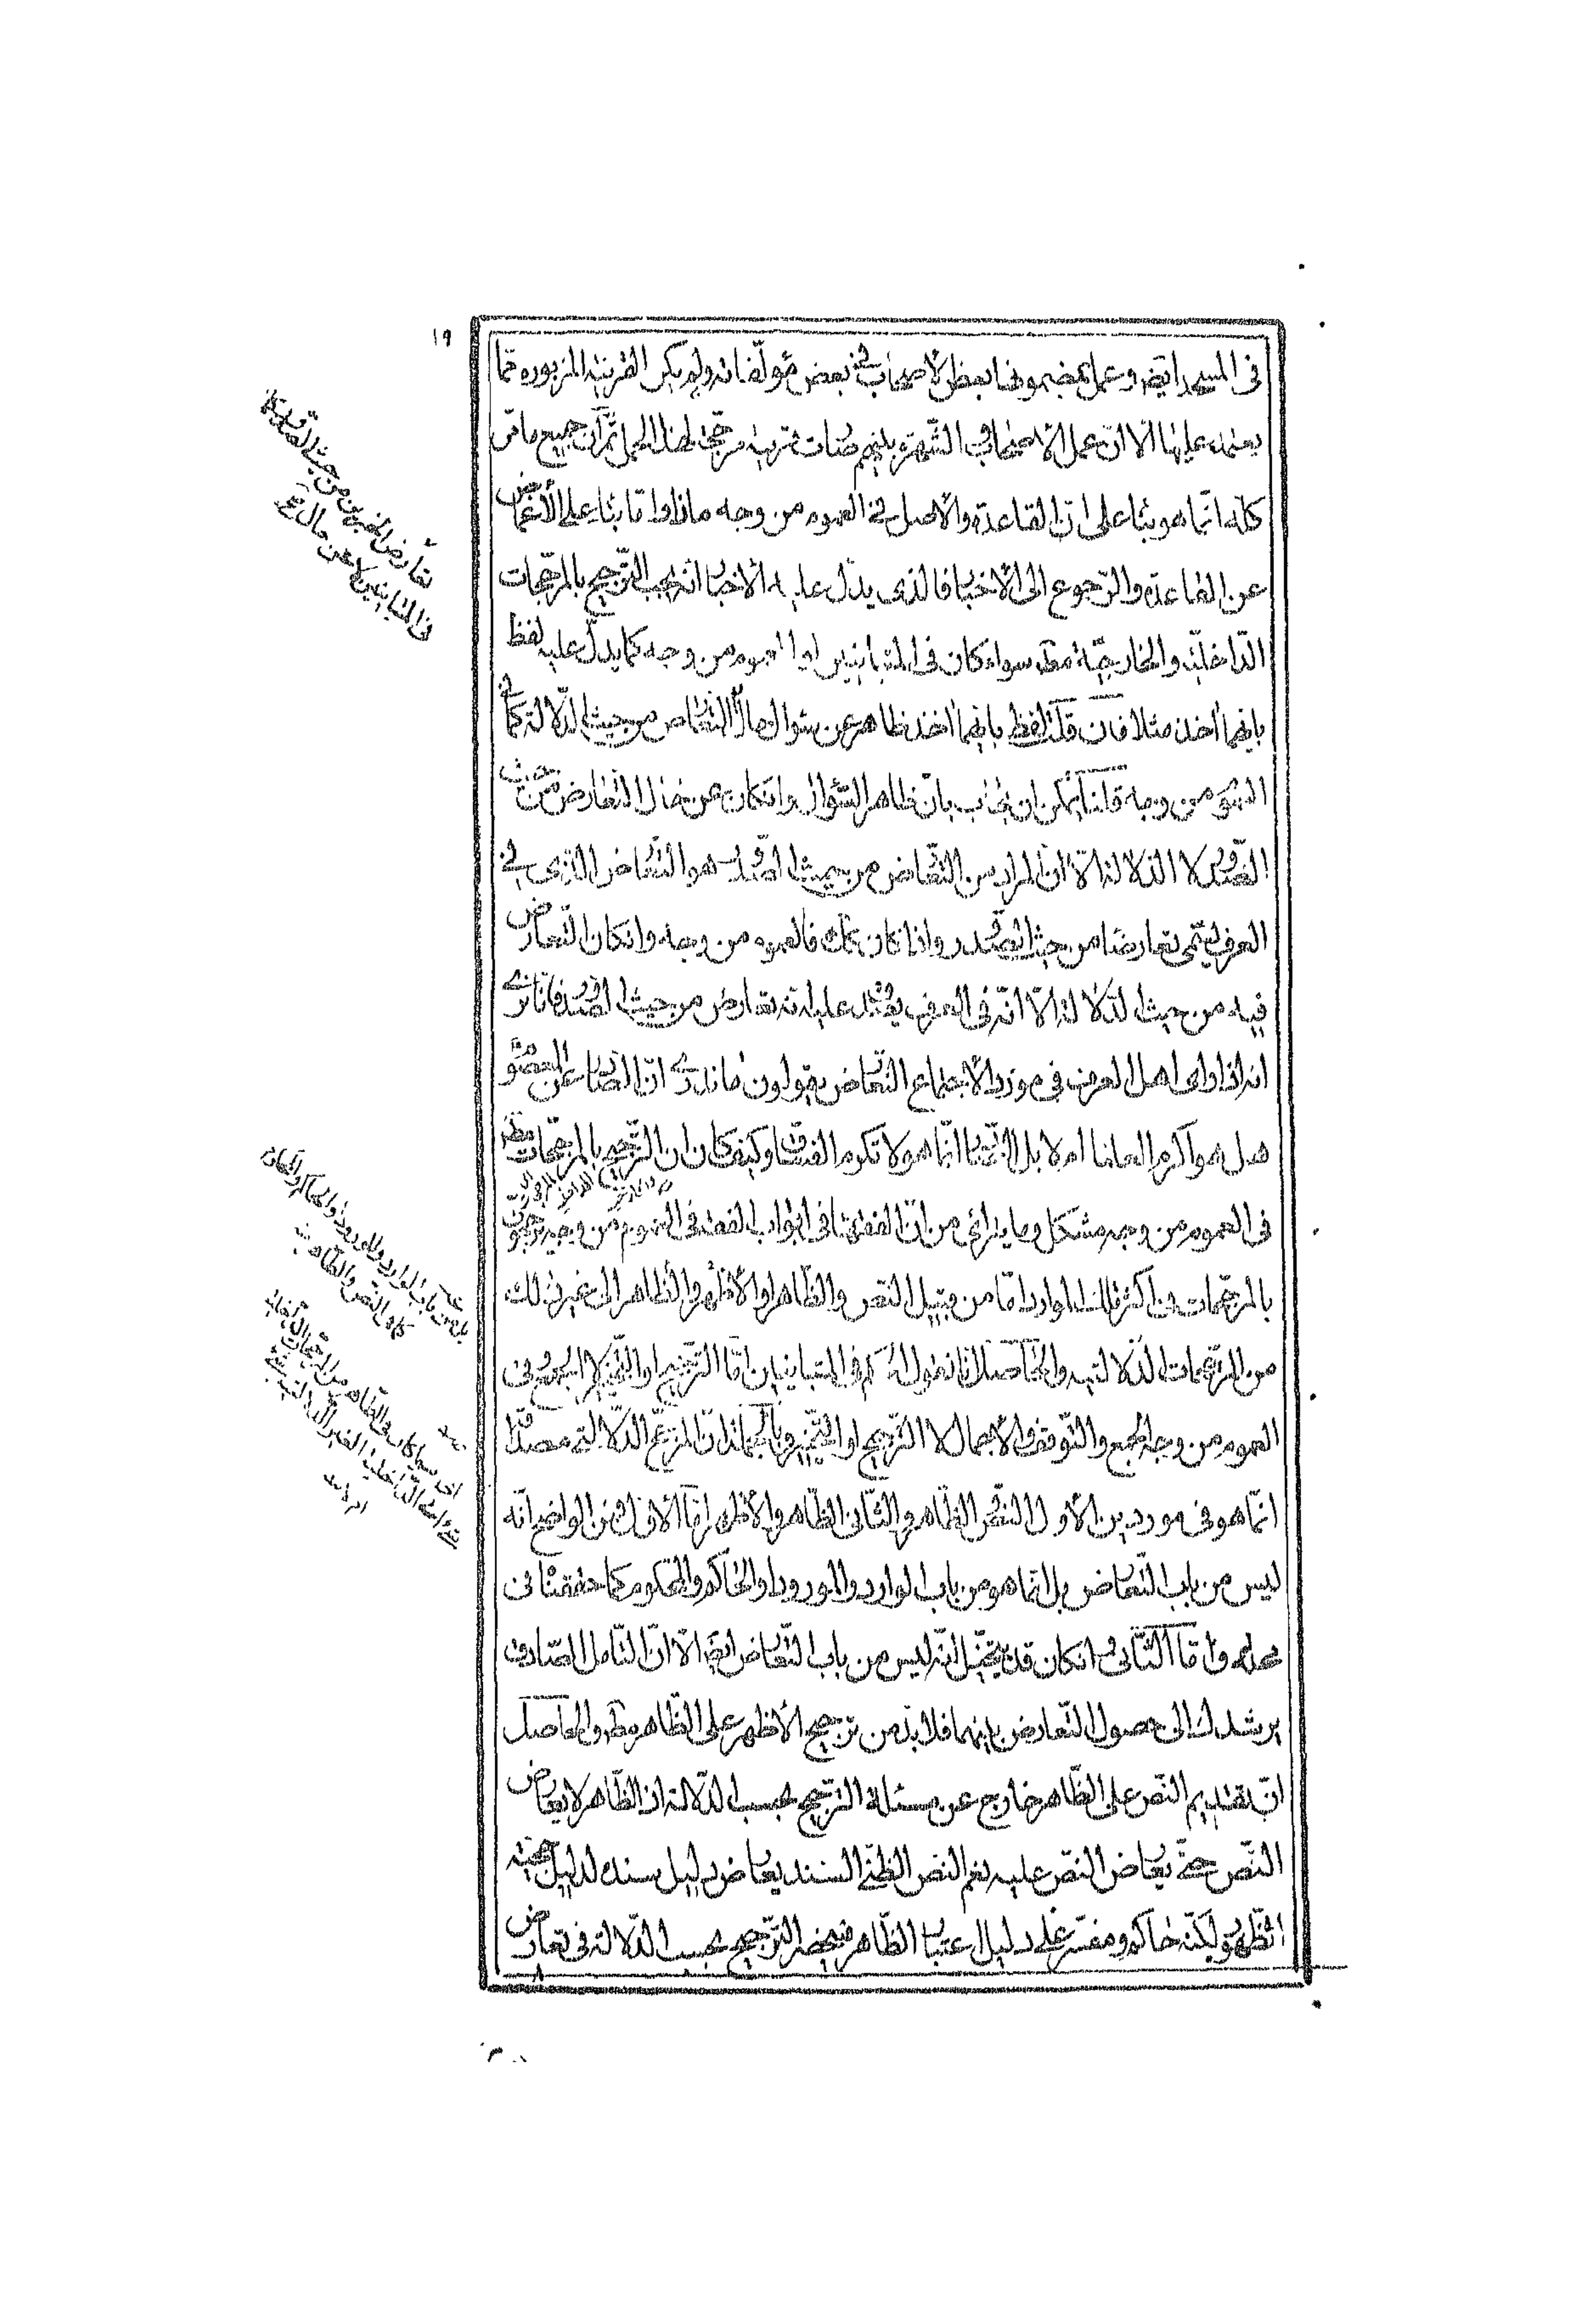 ١٩
فى المسجد ايضا و عمل بمضمونها بعض الاصحاب فى بعض مؤلفاته ولم يكن القرينة المزبورة مما
يعتمد عليها الّا انّ عمل الاصحاب و الشّهرة بينهم صارت قرينة مرجحة لهذا الحمل ثمّ انّ جميع ما مرّ
كلّه انّما هو بناء على انّ القاعدة والاصل فى العموم من وجه ماذا وامّا بناء على الاغماض
عن القاعدة والرّجوع الى الاخبار فالذى يدلّ عليه الاخبار انّه يجب التّرجيح بالمرجّحات
الدّاخليّة والخارجيّة مط سواء كان فى المتباينين او العموم من وجه كما يدلّ عليه لفظ
بايّهما اخذ مثلا فان قلت لفظ بايّهما اخذ ظاهر عن سؤال حال التّعارض من حيث الدّلالة كما فى
العموم من وجه قلنا يمكن ان يجاب بانّ ظاهر السّؤال وانكان عن حال التّعارض من حيث
الصّدور لا الدّلالة الّا انّ المراد من التّعارض من حيث الصّدور هو التّعارض الّذى فى
العرف يسمّى تعارضا من حيث الصّدور واذا كان كذلك فالعموم من وجه وانكان التّعارض
فيه من حيث الدّلالة الّا انّه فى العرف يصدق عليه انّه تعارض من حيث الصّدور فانّا نرى
انه اذا راى اهل العرف فى مورد الاجتماع التّعارض يقولون ما ندرى انّ الصّادر عن المعصوم
هل هو اكرم العلماء ام لا بل الصّادر انّما هو لا تكرم الفساق وكيف كان ان التّرجيح بالمرجّحات مط
فى العموم من وجه مشكل وما يترائى من انّ الفقهاء فى ابواب الفقه فى العموم من وجه يرجّحون
بالمرجّحات فى اكثر تلك الموارد امّا من قبيل النّص والظّاهر او الاظهر والظّاهر الى غير ذلك
من المرجّحات الدّلالتيه والحاصل انّا نقول الحكم فى المتباينين امّا التّرجيح او التّخيير لا الجمع وفى
العموم من وجه الجمع والتّوقف والاجمال لا التّرجيح او التّخيير وبالجملة انّ المرجّح الدّلالتى مصداقا
انّما هو فى موردين الاول النّص والظّاهر والثّانى الظّاهر والاظهر امّا الاوّل فمن الواضح انّه
ليس من باب التّعارض بل انّما هو من باب الوارد والمورود او الحاكم والمحكوم كما حققنا فى
محله وامّا الثّانى وانكان قد يتخيّل انّه ليس من باب التّعارض ايضا الّا انّ التّامل الصّادق
يرشدك الى حصول التّعارض بينهما فلا بدّ من ترجيح الاظهر على الظّاهر مط والحاصل
انّ تقديم النّص على الظّاهر خارج عن مسئلة التّرجيح بحسب الدّلالة اذ الظّاهر لا يعارض
النّص حتّى يعارض النّص عليه نعم النّص الظّنى السّند يعارض دليل سنده لدليل حجيّة
الظّهور لكنّه حاكم ومفسّر على دليل اعتبار الظّاهر فينحصر التّرجيح بحسب الدّلالة فى تعارض